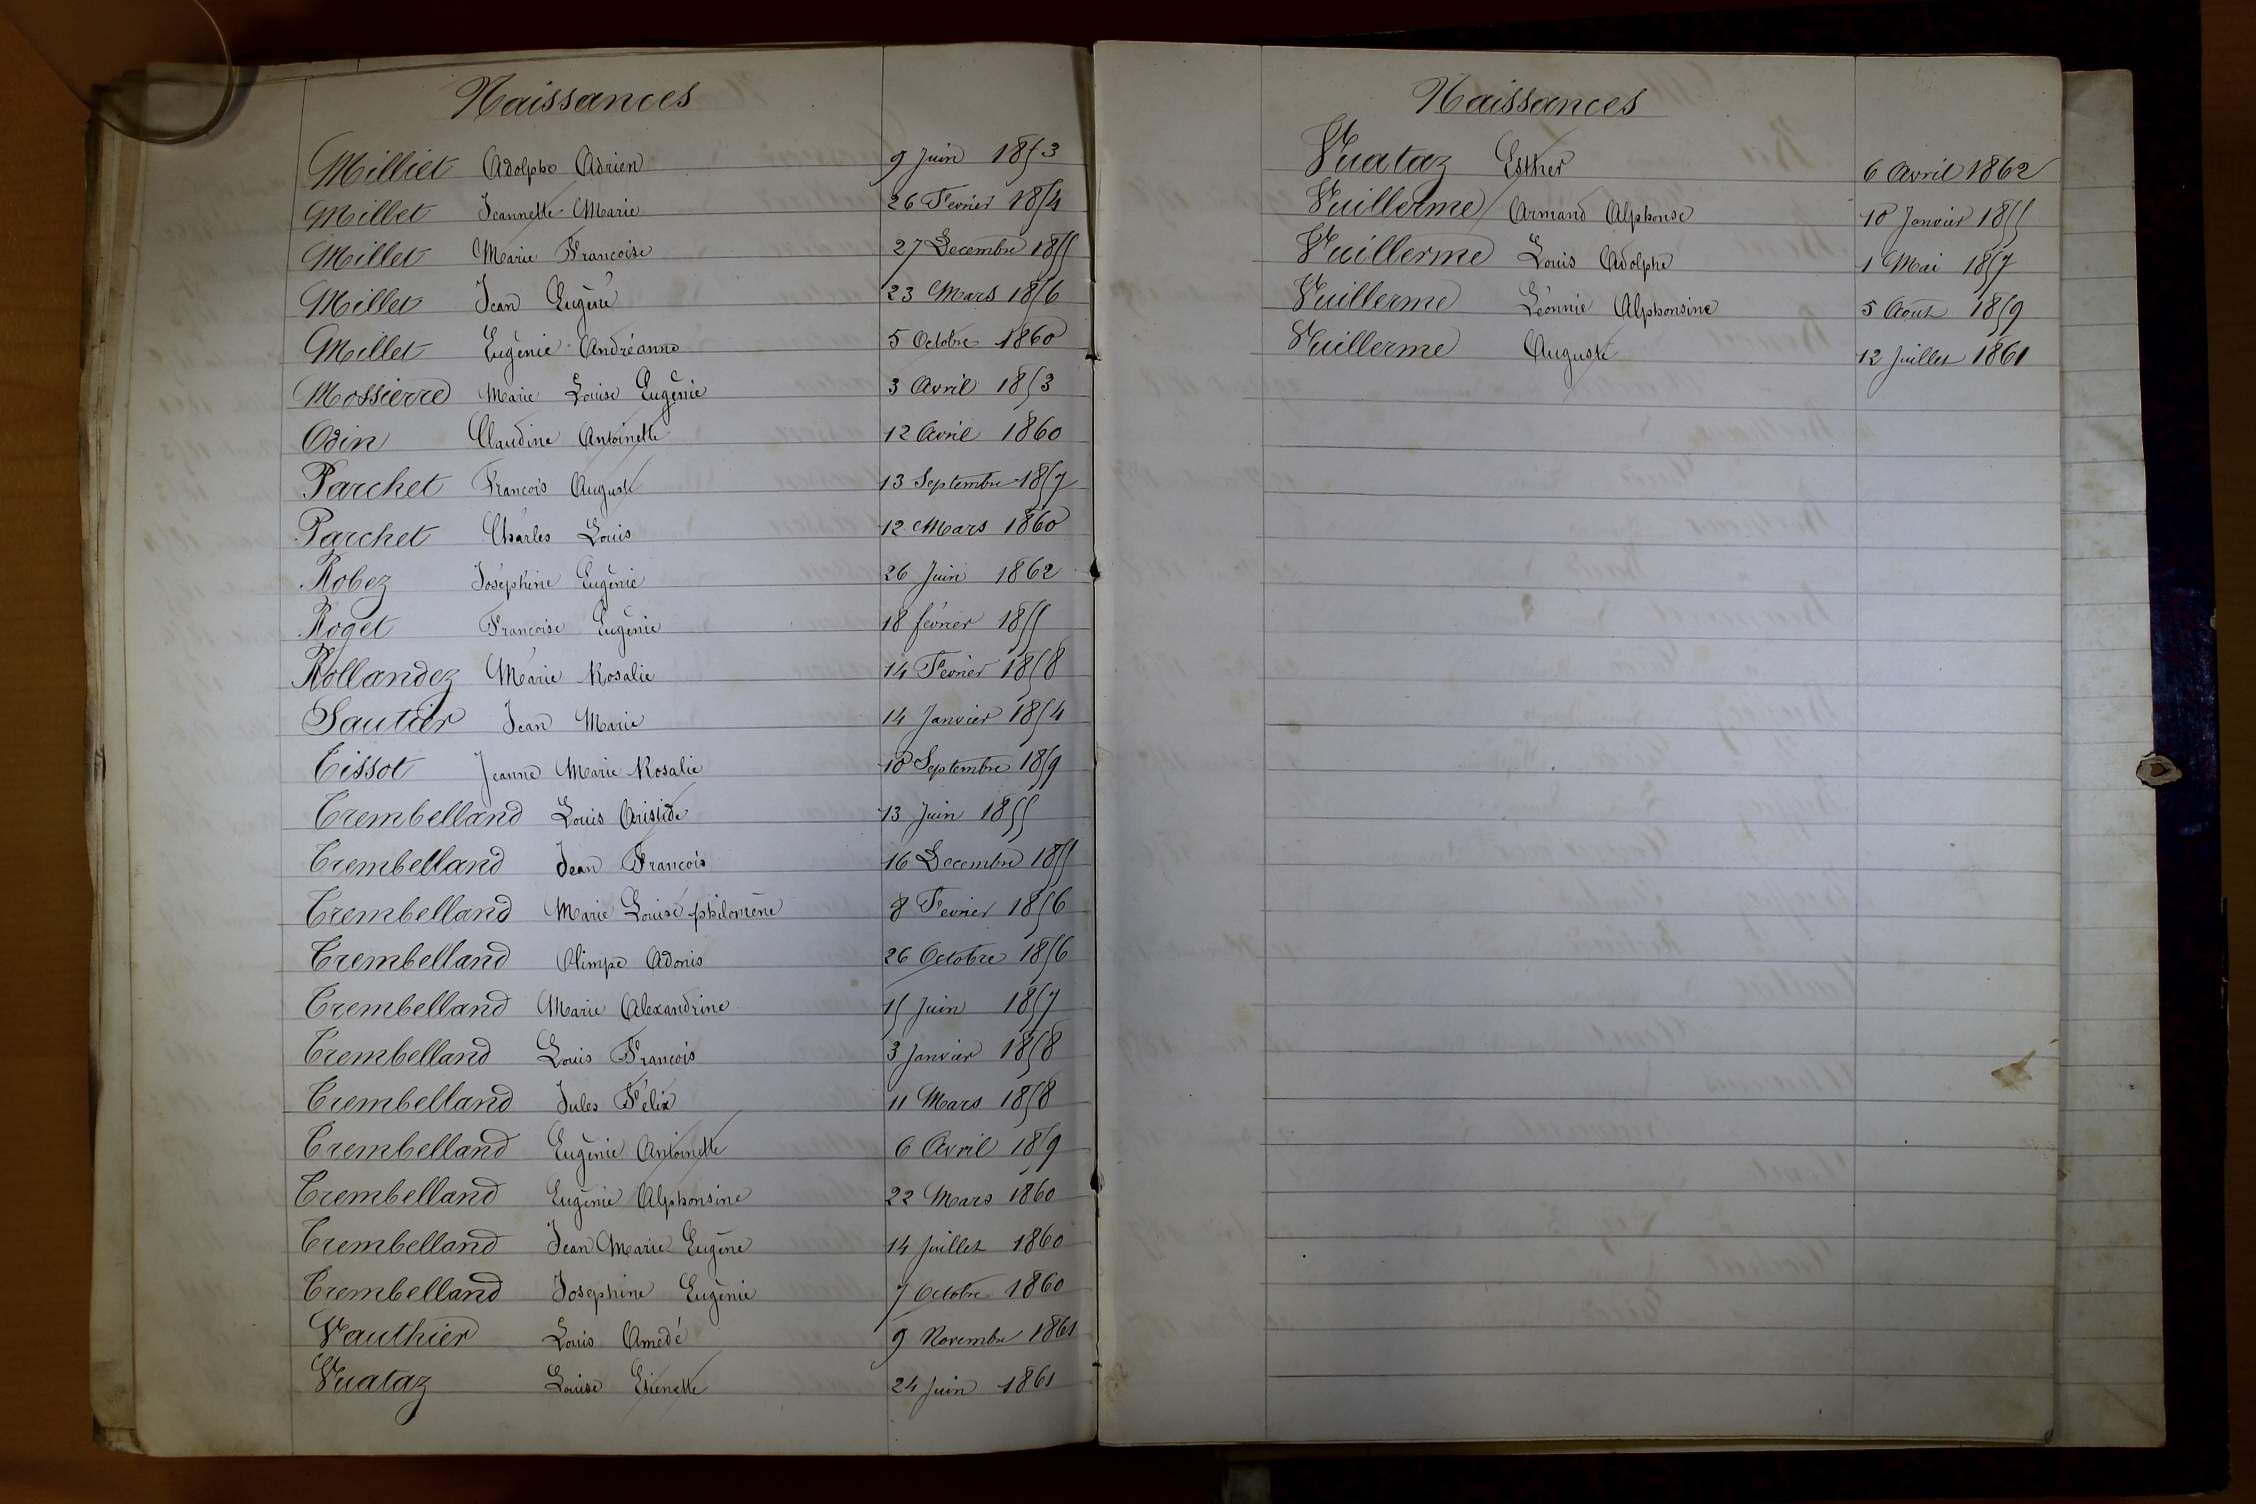 Naissances
Milliet Adolphe Adrien 9 Juin 1853
Millet Jeannette Marie 26 Fevrier 1854
Millet Marie Francoise 27 Decembre 1855
Millet Jean Eugène 23 Mars 1856
Millet Eugènie Andréanne 5 Octobre 1860
Mossierre Marie Louise Eugènie 3 Avril 1853
Odin Claudine Antoinette 12 Avril 1860
Parchet Francois Auguste 13 Septembre 1857
Parchet Charles Louis 12 Mars 1860
Robez Joséphine Eugènie 26 Juin 1862
Roget Francoise Eugènie 18 février 1855
Rollandez Marie Rosalie 14 Fevrier 1858
Sautier Jean Marie 14 Janvier 1854
Tissot Jeanne Marie Rosalie 10 Septembre 1859
Trembelland Louis Aristide 13 Juin 1855
Trembelland Jean Francois 16 Decembre 1855
Trembelland Marie Louise philomène 8 Fevrier 1856
Trembelland Olimpe Adonis 26 Octobre 1856
Trembelland Marie Alexandrine 15 Juin 1857
Trembelland Louis Francois 3 Janvier 1858
Trembelland Jules Félix 11 Mars 1858
Trembelland Eugènie Antoinette 6 Avril 1859
Trembelland Eugènie Alphonsine 22 Mars 1860
Trembelland Jean Marie Eugène 14 Juillet 1860
Trembelland Josephine Eugènie 7 Octobre 1860
Vauthier Louis Amédé 9 Novembre 1861
Vuataz Louise Etienette 24 Juin 1861
Naissances
Vuataz Esther 6 Avril 1862
Vuillerme Armand Alphonse 10 Janvier 1855
Vuillerme Louis Adolphe 1 Mai 1857
Vuillerme Léonnie Alphonsine 5 Aout 1859
Vuillerme Auguste 12 Juillet 1861